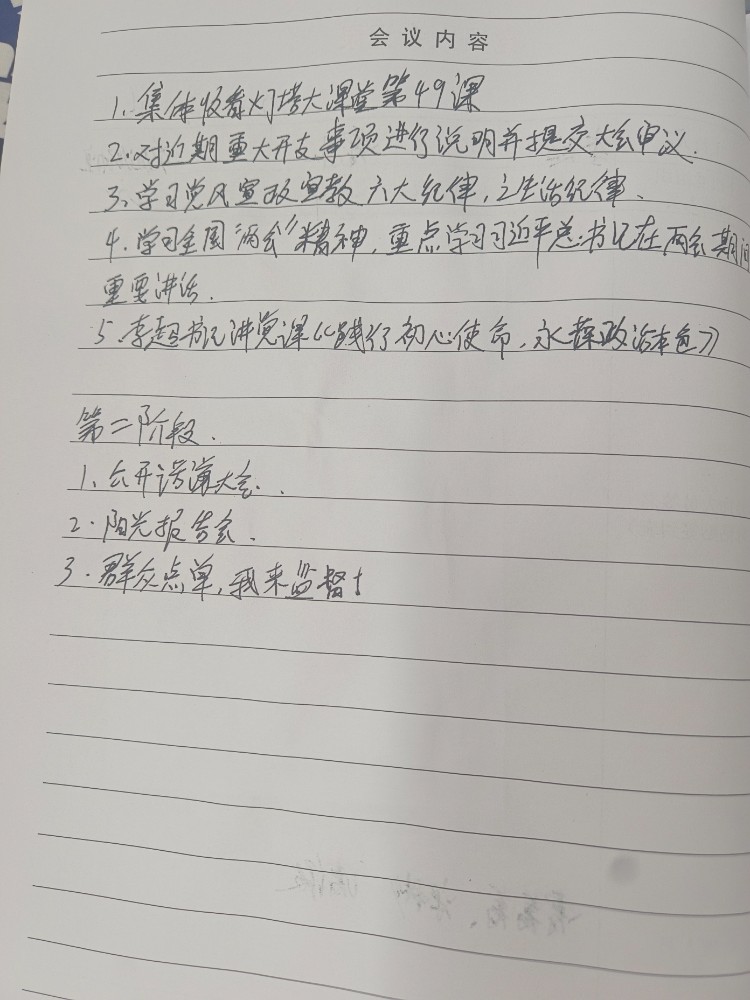 会议内容
1、集体收看灯塔大课堂第49课
2、对近期重大开支事项进行说明并提交大会审议.
3、学习党风宣政宣教六大纪律,之生活纪律、
4、学习全国“两会”精神,重点学习习近平总书记在两会期间
重要讲话.
5、李超书记讲党课《践行初心使命,永葆政治本色》
第二阶段.
1、公开诺演大会.
2、阳光报告会.
3、群众点单,我来监督!